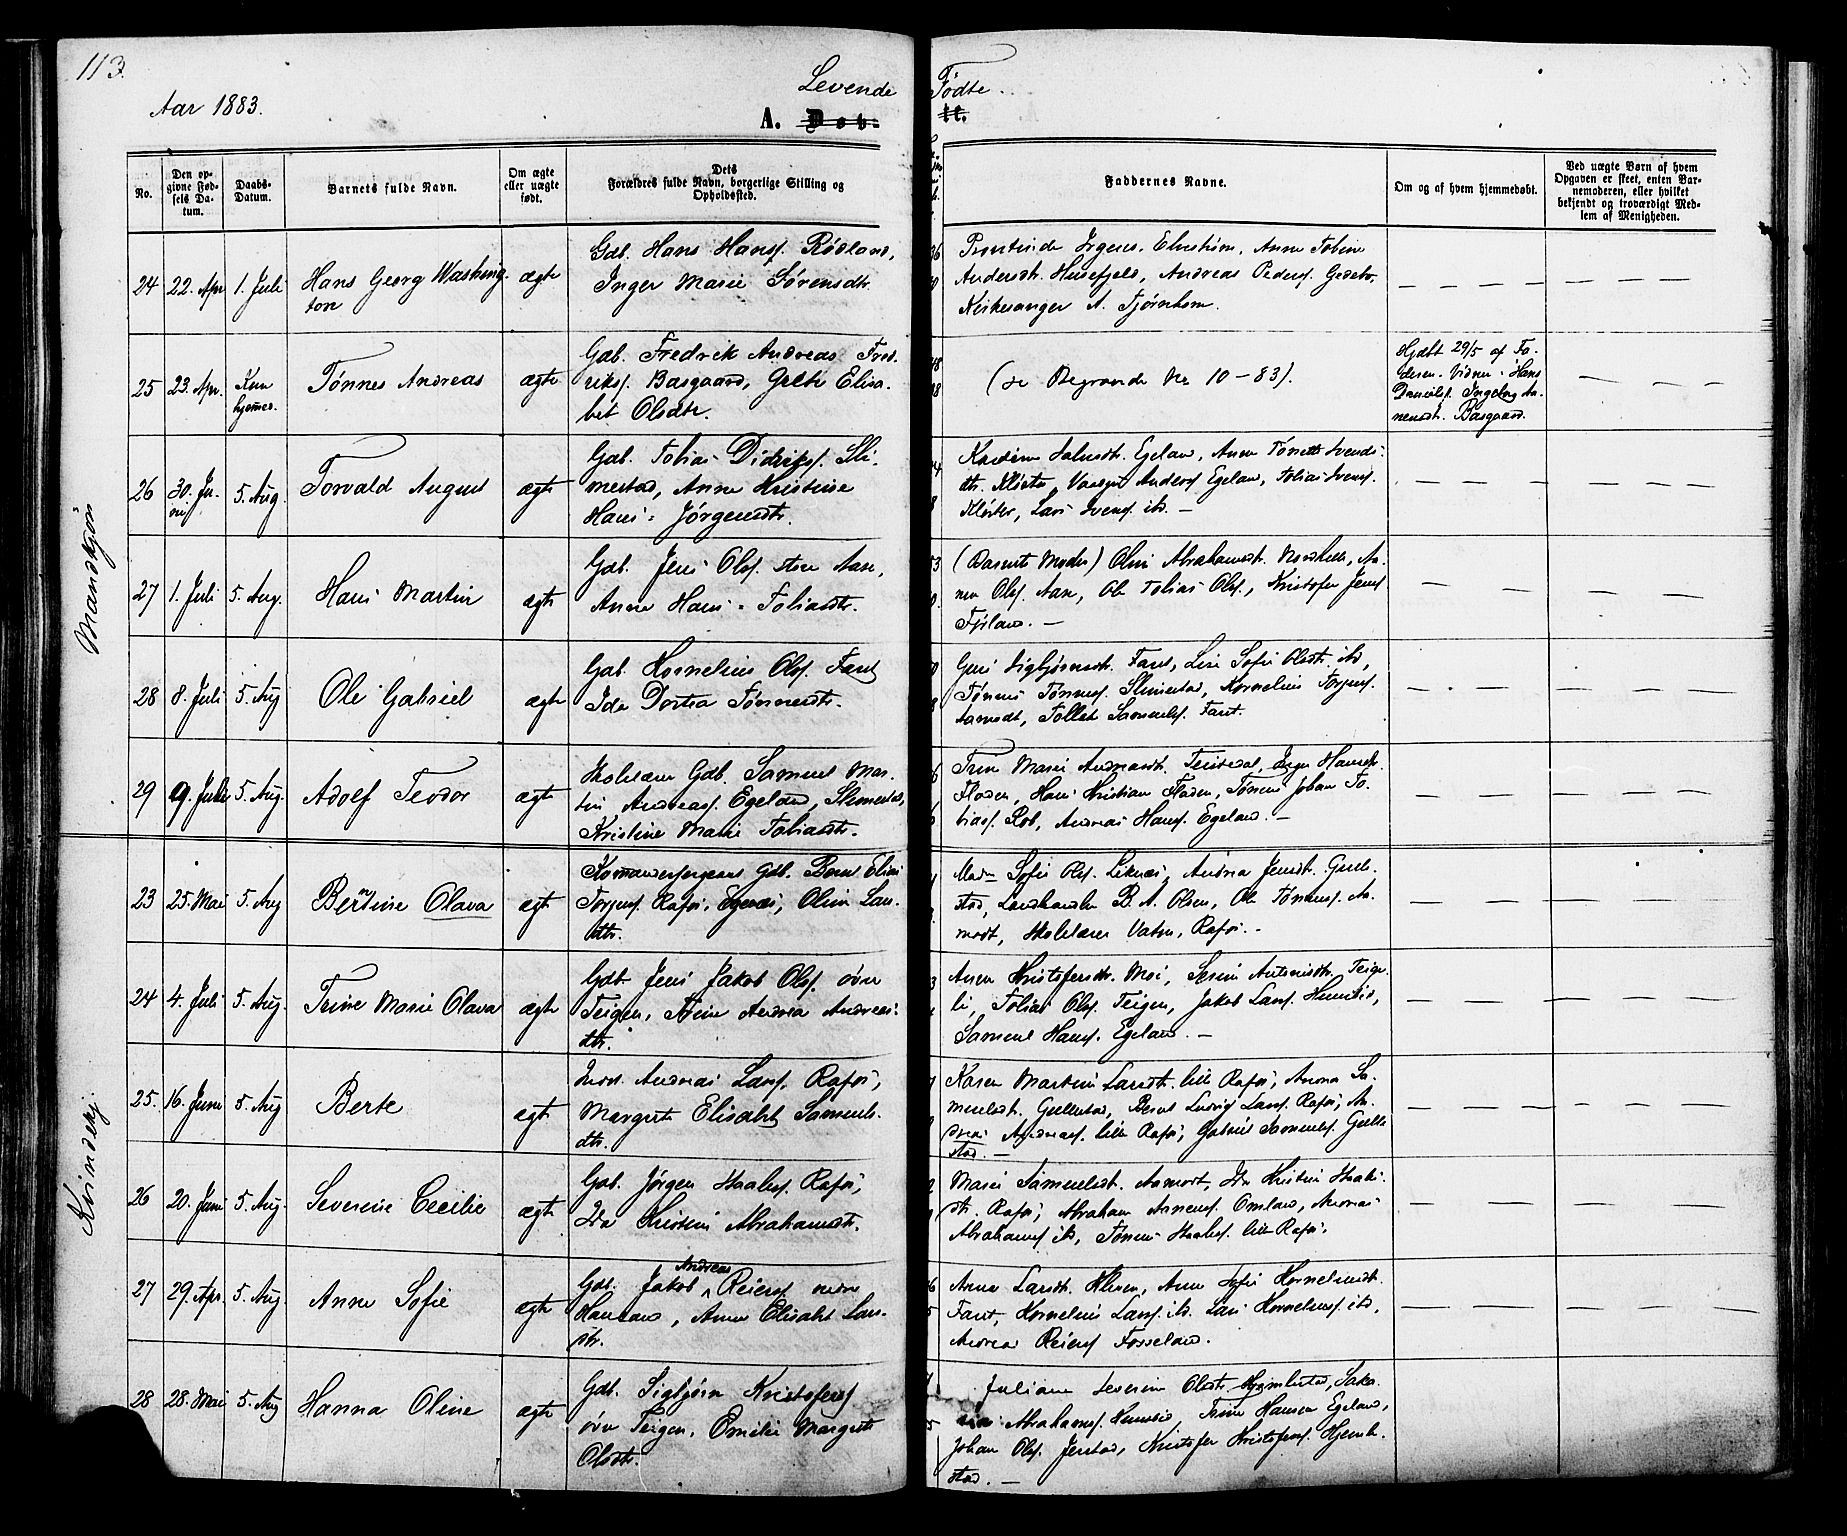 113.
Aar 1883.
Levende Fødte.
A. Døb-te.
No.
Den op-
givne Fød-
sels Da-
tum.
Daabs-
Datum.
Barnets fulde Navn.
Om ægte
eller uægte
født.
Dets
Forældres fulde Navn, borgerlige Stilling og
Opholdssted.
Faddernes Navne.
Om og af hvem hjemmedøbt.
Ved uægte Børn af hvem
Opgaven er skeet, enten Bar-
nemoderen, eller hvilket
bekjendt og troværdigt Med-
lem af Menigheden.
Mandkjøn
24 22. Apr 1. Juli Hans Georg Washing
ton
ægte
Gdb. Hans Hansf. Rødland,
Inger Marie Sørensdtr.
Anne Tobine
Andersdt. Husefjeld, Andreas Peders. Gedebo,
Kirkesanger A. Tjørnhom.
25 23. Apr. Kun
hjemmed.
Tønnes Andreas
ægte
Gdb. Fredrik Andreas Fred-
riksf. Basgaard, Elisa-
bet Olsdtr.
(se Begravede No 10-83).
Hjdbt 29/5 af Fa-
deren. Vidner: Hans
Danielsf. Ingeborg Aa-
nensdt. Basgaard.
26 30. Ju-
ni
5. Aug.
Torvald August
ægte
Gdb. Tobias Didriksf. Sli-
mestad, Anne Kristine
Hans-Jørgensdtr.
Egeland, Anne Tønette Svends-
dtr. Kloster, Andersf Egeland, Tobias Svensf.
Kloster, Lars Svensf. ibd. -
27 1. Juli 5. Aug. Hans Martin
ægte
Gdb. Jens Olsf. store Aase,
Anne Hans-Tobiasdtr.
(Barnets Moder) Oline Abrahamsdt. Aa-
nen Olsf. Aase, Ole Tobias Olsf., Kristofer Jensf
28 8. Juli 5. Aug Ole Gabriel
ægte
Gdb. Kornelius Olsf. Faret
Ida Dortea Tønnesdtr.
Guri Sigbjørnsdt. Faret, Lise Sofie Olsdtr. ibd,
Tønnes Tønnesf. Slimestad, Kornelius Torjusf.
Aamodt, Tollef Samuelsf. Faret.
29 9. Juli 5. Aug. Adolf Teodor
ægte
Skolelærer Gdb. Samuel Mar-
tin Andreasf. Egeland, Slimestad,
Kristine Marie Tobiasdtr.
Trine Marie Andreasdt. Hansdt.
Fladen, Hans Kristian Fladen, Tønnes Johan To-
biasf. Rob, Andreas Hansf. Egeland. -
Kvindekj.
23 25. Mai 5. Aug Berntine Olava
ægte
Kommandersergeant Gdb. Bernt Elias
Torjusf. Rafos, Oline Lars-
dtr.
Sofie Olsf. Liknes, Andrea Jensdt. Gulle-
stad, Landhandler B. A. Olsen, Ole Tønnesf. Aa-
modt, Skolelærer Vatne, Rafos. -
24 4. Juli 5. Aug. Trine Marie Olava
ægte
Gdb. Jens Jakob Olsf. øvre
Teigen, Andrea Andreas-
dtr.
Anna Kristofersdtr. Moi, Teige-
li, Tobias Olsf. Teigen, Jakob Larsf. Hunsbed,
Samuel Hansf. Egeland. -
25. 16. Juni 5. Aug Berte
ægte
Andreas Larsf. Rafos,
Margrete Elisabet Samuels-
dtr.
Karen Martine Larsdtr. lille Rafos, Anna Sa-
muelsdt. Gullestad, Bernt Ludvig Larsf. Rafos, An-
dreas Andreasf. lille Rafos, Gabriel Samuelsf. Gulle
stad. -
26 20. Juni 5. Aug. Severine Cecilie
ægte
Gdb. Jørgen Staalesf. Rafos,
Ida Kristine Abrahamsdtr.
Marie Samuelsdt. Aamodt, Ida Kristine Staales-
dt. Rafos, Abraham Aanensf. Omland, Andreas
Abrahamsf ibd, Tønnes Staalesf. lille Rafos.
27 29. Apr. 5. Aug. Anne Sofie
ægte
Gdb. Jakob Andreas Reiersf nedre
Haugland, Anne Elisabet Lars-
dtr.
Anna Larsdtr. Kleven, Anne Sofie Korneliusdt.
Faret, Kornelius Larsf. ibd. Lars Korneliusf. ibd,
Andreas Reiersf Fosseland.
28 28. Mai 5. Aug Hanna Oline
ægte
Gdb. Sigbjørn Kristofersf
øvre Teigen, Emilie Margrete
Olsdtr.
Juliane Severine Olsdtr. Saka-
rias Abrahamsf. Hunsbed, Trine Hansen Egeland,
Johan Olsf. Jerstad, Kristofer Kristofersf. Hjemle-
stad. -